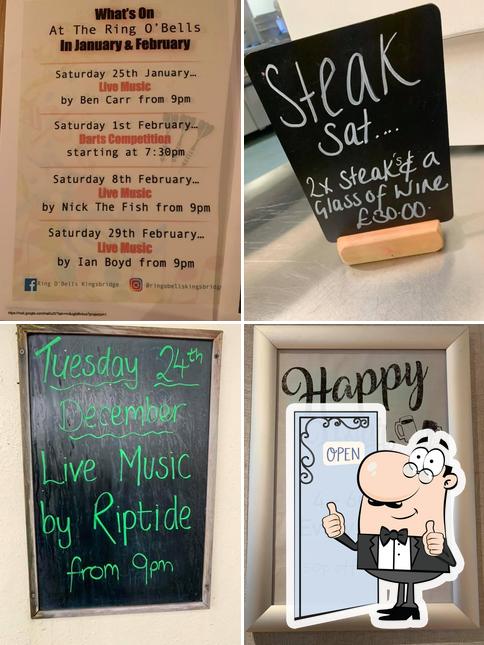 What's On
At The Ring O'Bells
In January & February
Saturday 25th January…
Live Music
by Ben Carr from 9pm
Saturday 1st February…
Darts Competition
starting at 7:30pm
Saturday 8th February…
Live Music
by Nick The Fish from 9pm
Saturday 29th February…
Live Music
by Ian Boyd from 9pm
Ring O'Bells Kingsbridge
@ringobellskingsbridge
Steak
Sat....
2x Steak's & a
Glass of Wine
£30.00.
Tuesday 24th
December
Live Music
by Riptide
from 9pm
Happy
OPEN